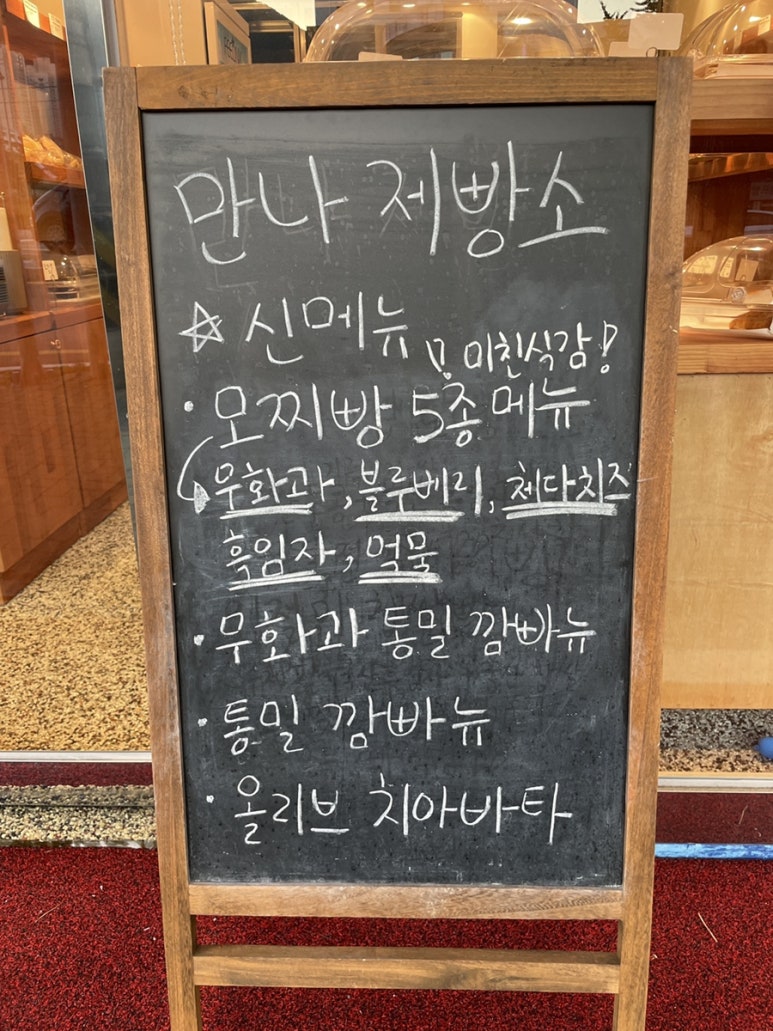 만나 제빵소
☆ 신메뉴
! 미친식감!
· 모찌빵 5종 메뉴
무화과, 블루베리, 체다치즈
흑임자, 먹물
· 무화과 통밀 깜빠뉴
· 통밀 깜빠뉴
· 올리브 치아바타